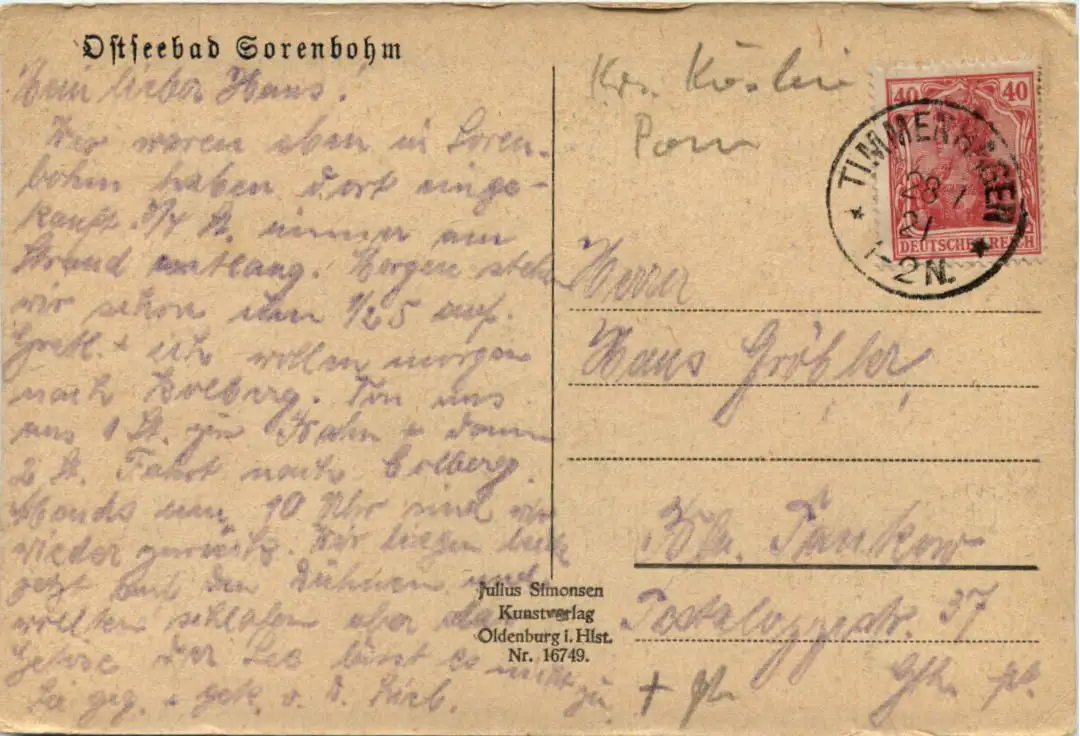 Ostseebad Sorenbohm
Mein lieber Hans!
Wir waren eben in Soren-
bohm haben dort einge-
kauft. 3/4 St. immer am
Strand entlang. Morgen stehen
wir schon um 1/2 5 auf.
Gretl. + ich wollen morgen
nach Kolberg. Von uns
aus 1 St. zur Bahn + dann
2 St. Fahrt nach Colberg.
Abends um 10 Uhr sind wir
wieder zurück. Wir liegen
jetzt auf den Dühnen und
wollten schlafen aber das
Getose der See lässt es nicht zu
geg. + gek. v. d.
Krs. Köslin
Pom
40 40
DEUTSCHES REICH
TIMMENHAGEN
28 7
21
1-2 N.
Herrn
Hans Gröhler
Bln. Pankow
37
Julius Simonsen
Kunstverlag
Oldenburg i. Hlst.
Nr. 16749.